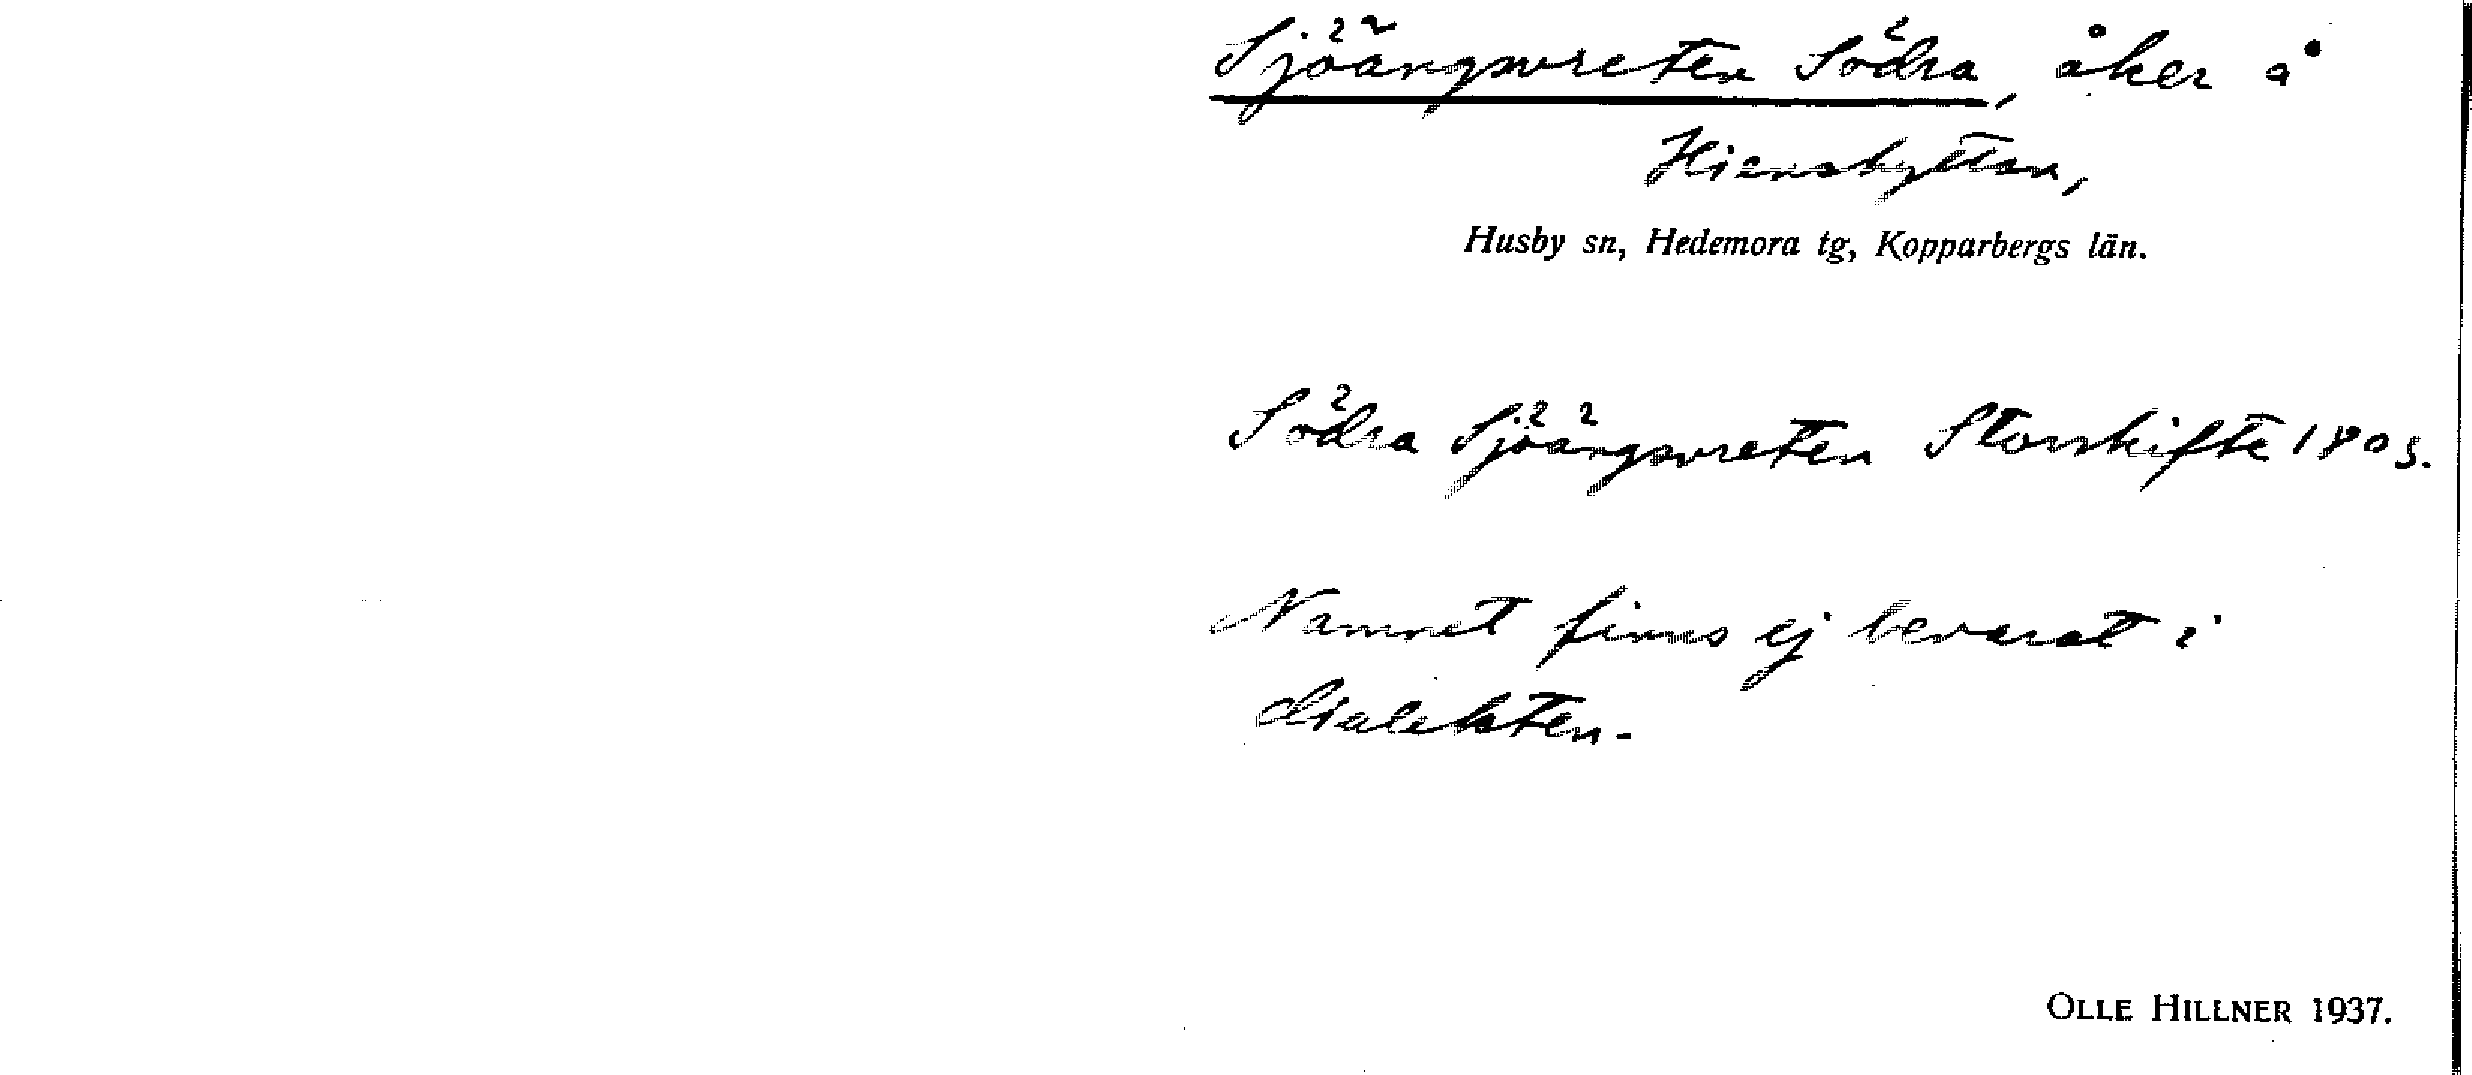 Sjöängsvreten Södra, åker å
Hienshyttan,
Husby sn, Hedemora tg, Kopparbergs län.
Södra Sjöängsvreten Storskifte 1805.
Namnet finns ej bevarat i
dialekten.
OLLE HILLNER 1937.